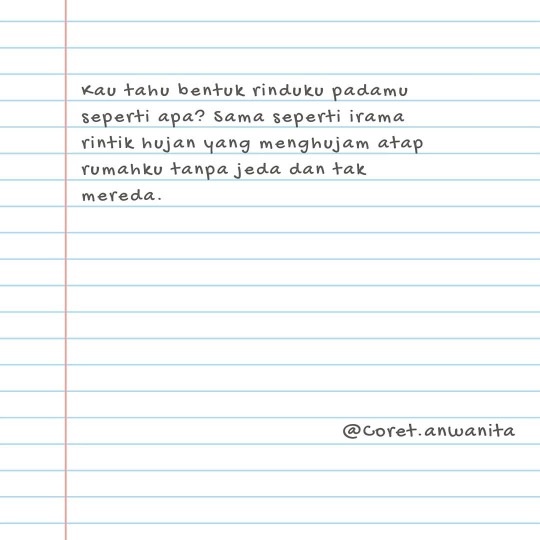 Kau tahu bentuk rinduku padamu
seperti apa? Sama seperti irama
rintik hujan yang menghujam atap
rumahku tanpa jeda dan tak
mereda.
@Coret.anwanita